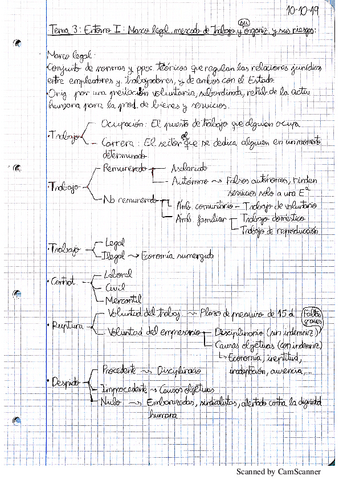 10-10-19
Tema 3: Entorno I: Marco legal, mercado de trabajo y organiz. y sus riesgos:
Marco legal:
Conjunto de normas y ppos teóricos que regulan las relaciones jurídicas
entre empleadores y trabajadores, y de ambos con el Estado.
· Orig. por una prestación voluntaria, subordinada, retrib. de la activ.
humana para la prod. de bienes y servicios.
· Trabajo
Ocupación: El puesto de trabajo que alguien ocupa
Carrera: El sector que se dedica alguien en un momento
determinado
· Trabajo
Remunerado
Asalariado
Autónomo → Falsos autónomos, venden
servicios solo a una Eª
No remunerado
Amb. comunitario - Trabajo de voluntario
Amb. familiar
Trabajo doméstico
Trabajo de reproducción
· Trabajo
Legal
Ilegal → Economía sumergida
· Contrat
Laboral
Civil
Mercantil
· Ruptura
Voluntad del trabaj → Plazo de preaviso de 15 d
Voluntad del empresario
Disciplinario (sin indemniz)
Causas objetivas (con indemniz)
↳ Economía, ineptitud,
inadaptación, ausencia,...
· Despido
Procedente → Disciplinario
Improcedente → Causas objetivas
Nulo → Embarazadas, sindicalistas, atentado contra la dignidad
humana
Scanned by CamScanner